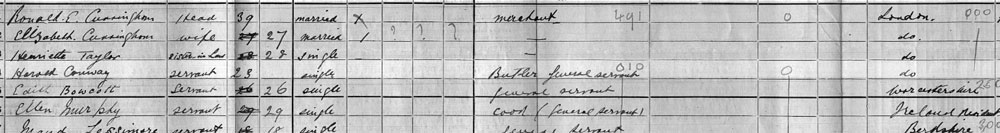 Ronald E. Cunningham Head 39 married X merchant 491 0 London. 000
Elizabeth Cunningham wife 27 married 1 ? ? ? — do.
Henriette Taylor sister in Law 28 single — — do
Harold Conway servant 23 single Butler general servant 010 0 do
Edith Bowcott Servant 26 single general servant Worcestershire
Ellen Murphy servant 29 single cook (general servant) Ireland Resident
Maud servant 18 single general servant Berkshire